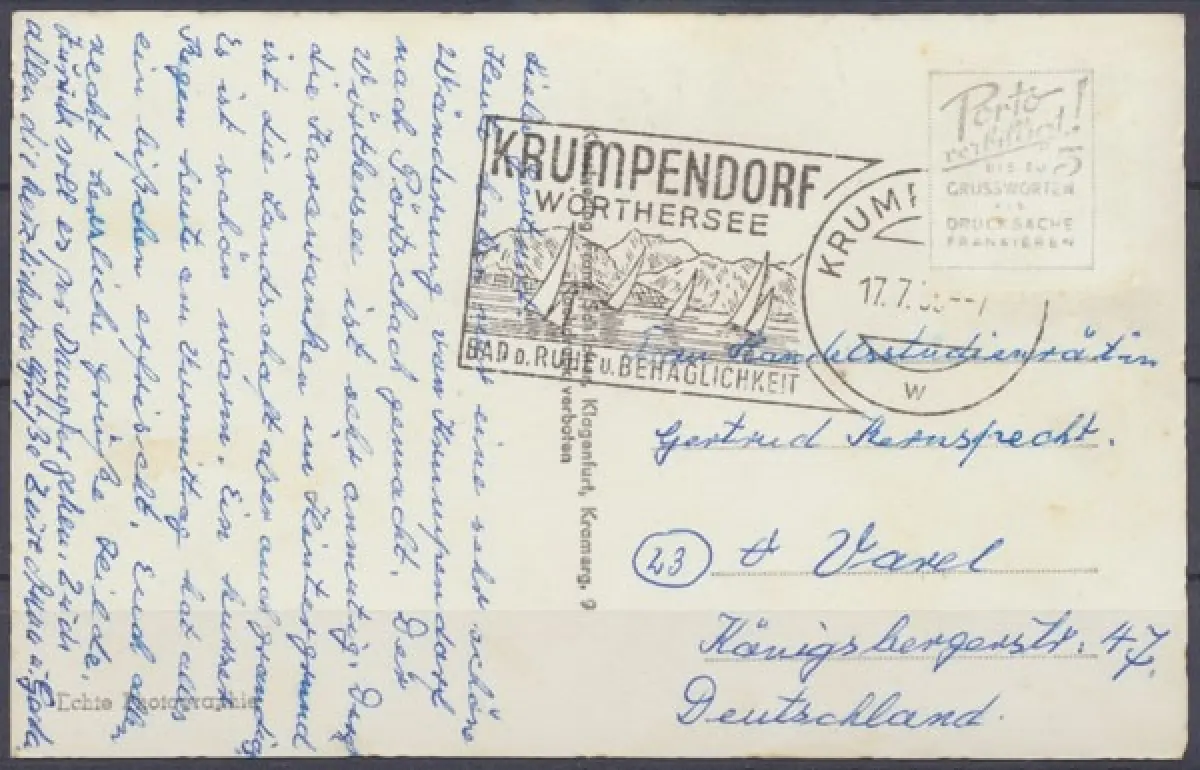 Liebe Gertrud!
Heute haben wir eine sehr schöne
Wanderung von Krumpendorf
nach Pörtschach gemacht. Der
Wörthersee ist sehr anmutig. Durch
die Karawanken im Hintergrund
ist die Landschaft aber auch grandios.
Es ist schön warm. Ein kurzer
Regen heute am Vormittag hat alles
ein bißchen erfrischt. Euch allen
recht herzliche Grüße
Zurück soll es per Dampfer gehen.
allen die herzlichsten Grüße Eure Anna
Echte Photographie
Klagenfurt, Kramerg. 9
verboten
KRUMPENDORF
WÖRTHERSEE
BAD D. RUHE U. BEHAGLICHKEIT
KRUMP
17.7.
W
Porto
verbilligt!
BIS ZU 5
GRUSSWORTEN
ALS
DRUCKSACHE
FRANKIEREN
Frau Handelsstudienrätin
Gertrud Kernsprecht.
(23) Varel
Königsbergerstr. 47
Deutschland.